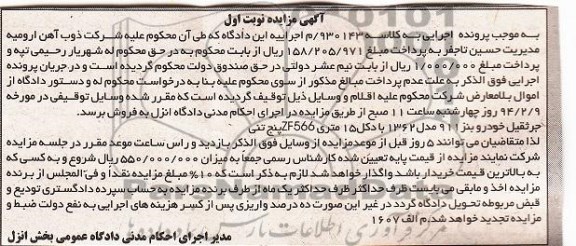 آگهی مزایده نوبت اول
به موجب پرونده اجرایی به کلاسه ۹۳۰۱۴۳/م اجراییه این دادگاه که طی آن محکوم علیه شرکت ذوب آهن ارومیه
مدیریت حسین تاجفر به پرداخت مبلغ ۱۵۸/۲۰۵/۹۷۱ ریال از بابت محکوم به در حق محکوم له شهریار رحیمی تپه و
پرداخت مبلغ ۱/۰۰۰/۰۰۰ ریال از بابت نیم عشر دولتی در حق صندوق دولت محکوم گردیده است و در جریان پرونده
اجرایی فوق الذکر به علت عدم پرداخت مبالغ مذکور از سوی محکوم علیه بنا به درخواست محکوم له و دستور دادگاه از
اموال بلامعارض شرکت محکوم علیه اقلام و وسایل ذیل توقیف گردیده است که مقرر شده وسایل توقیفی در مورخه
۹۴/۲/۹ روز چهارشنبه ساعت ۱۱ صبح از طریق مزایده در اجرای احکام مدنی دادگاه انزل به فروش برسد.
جرثقیل خودرو بنز ۹۱۱ مدل ۱۳۶۲ با دکل ۱۵ متری ZF566 پنج تنی
لذا متقاضیان می توانند ۵ روز قبل از موعد مزایده از وسایل فوق الذکر بازدید و راس ساعت موعد مقرر در جلسه مزایده
شرکت نمایند مزایده از قیمت پایه تعیین شده کارشناس رسمی جمعاً به میزان ۵۵۰/۰۰۰/۰۰۰ ریال شروع و به کسی که
به بالاترین قیمت خریدار باشد واگذار خواهد شد لازم به ذکر است که ۱۰% مبلغ مزایده نقداً و فی المجلس از برنده
مزایده اخذ و مابقی می بایست ظرف حداکثر ظرف حداکثر یک ماه از طرف برنده مزایده به حساب سپرده دادگستری تودیع و
قبض مربوطه تحویل دادگاه گردد در غیر این صورت ده درصد واریزی پس از کسر هزینه های اجرایی به نفع دولت ضبط و
مزایده تجدید خواهد شد.م الف ۱۶۰۷
مدیر اجرای احکام مدنی دادگاه عمومی بخش انزل